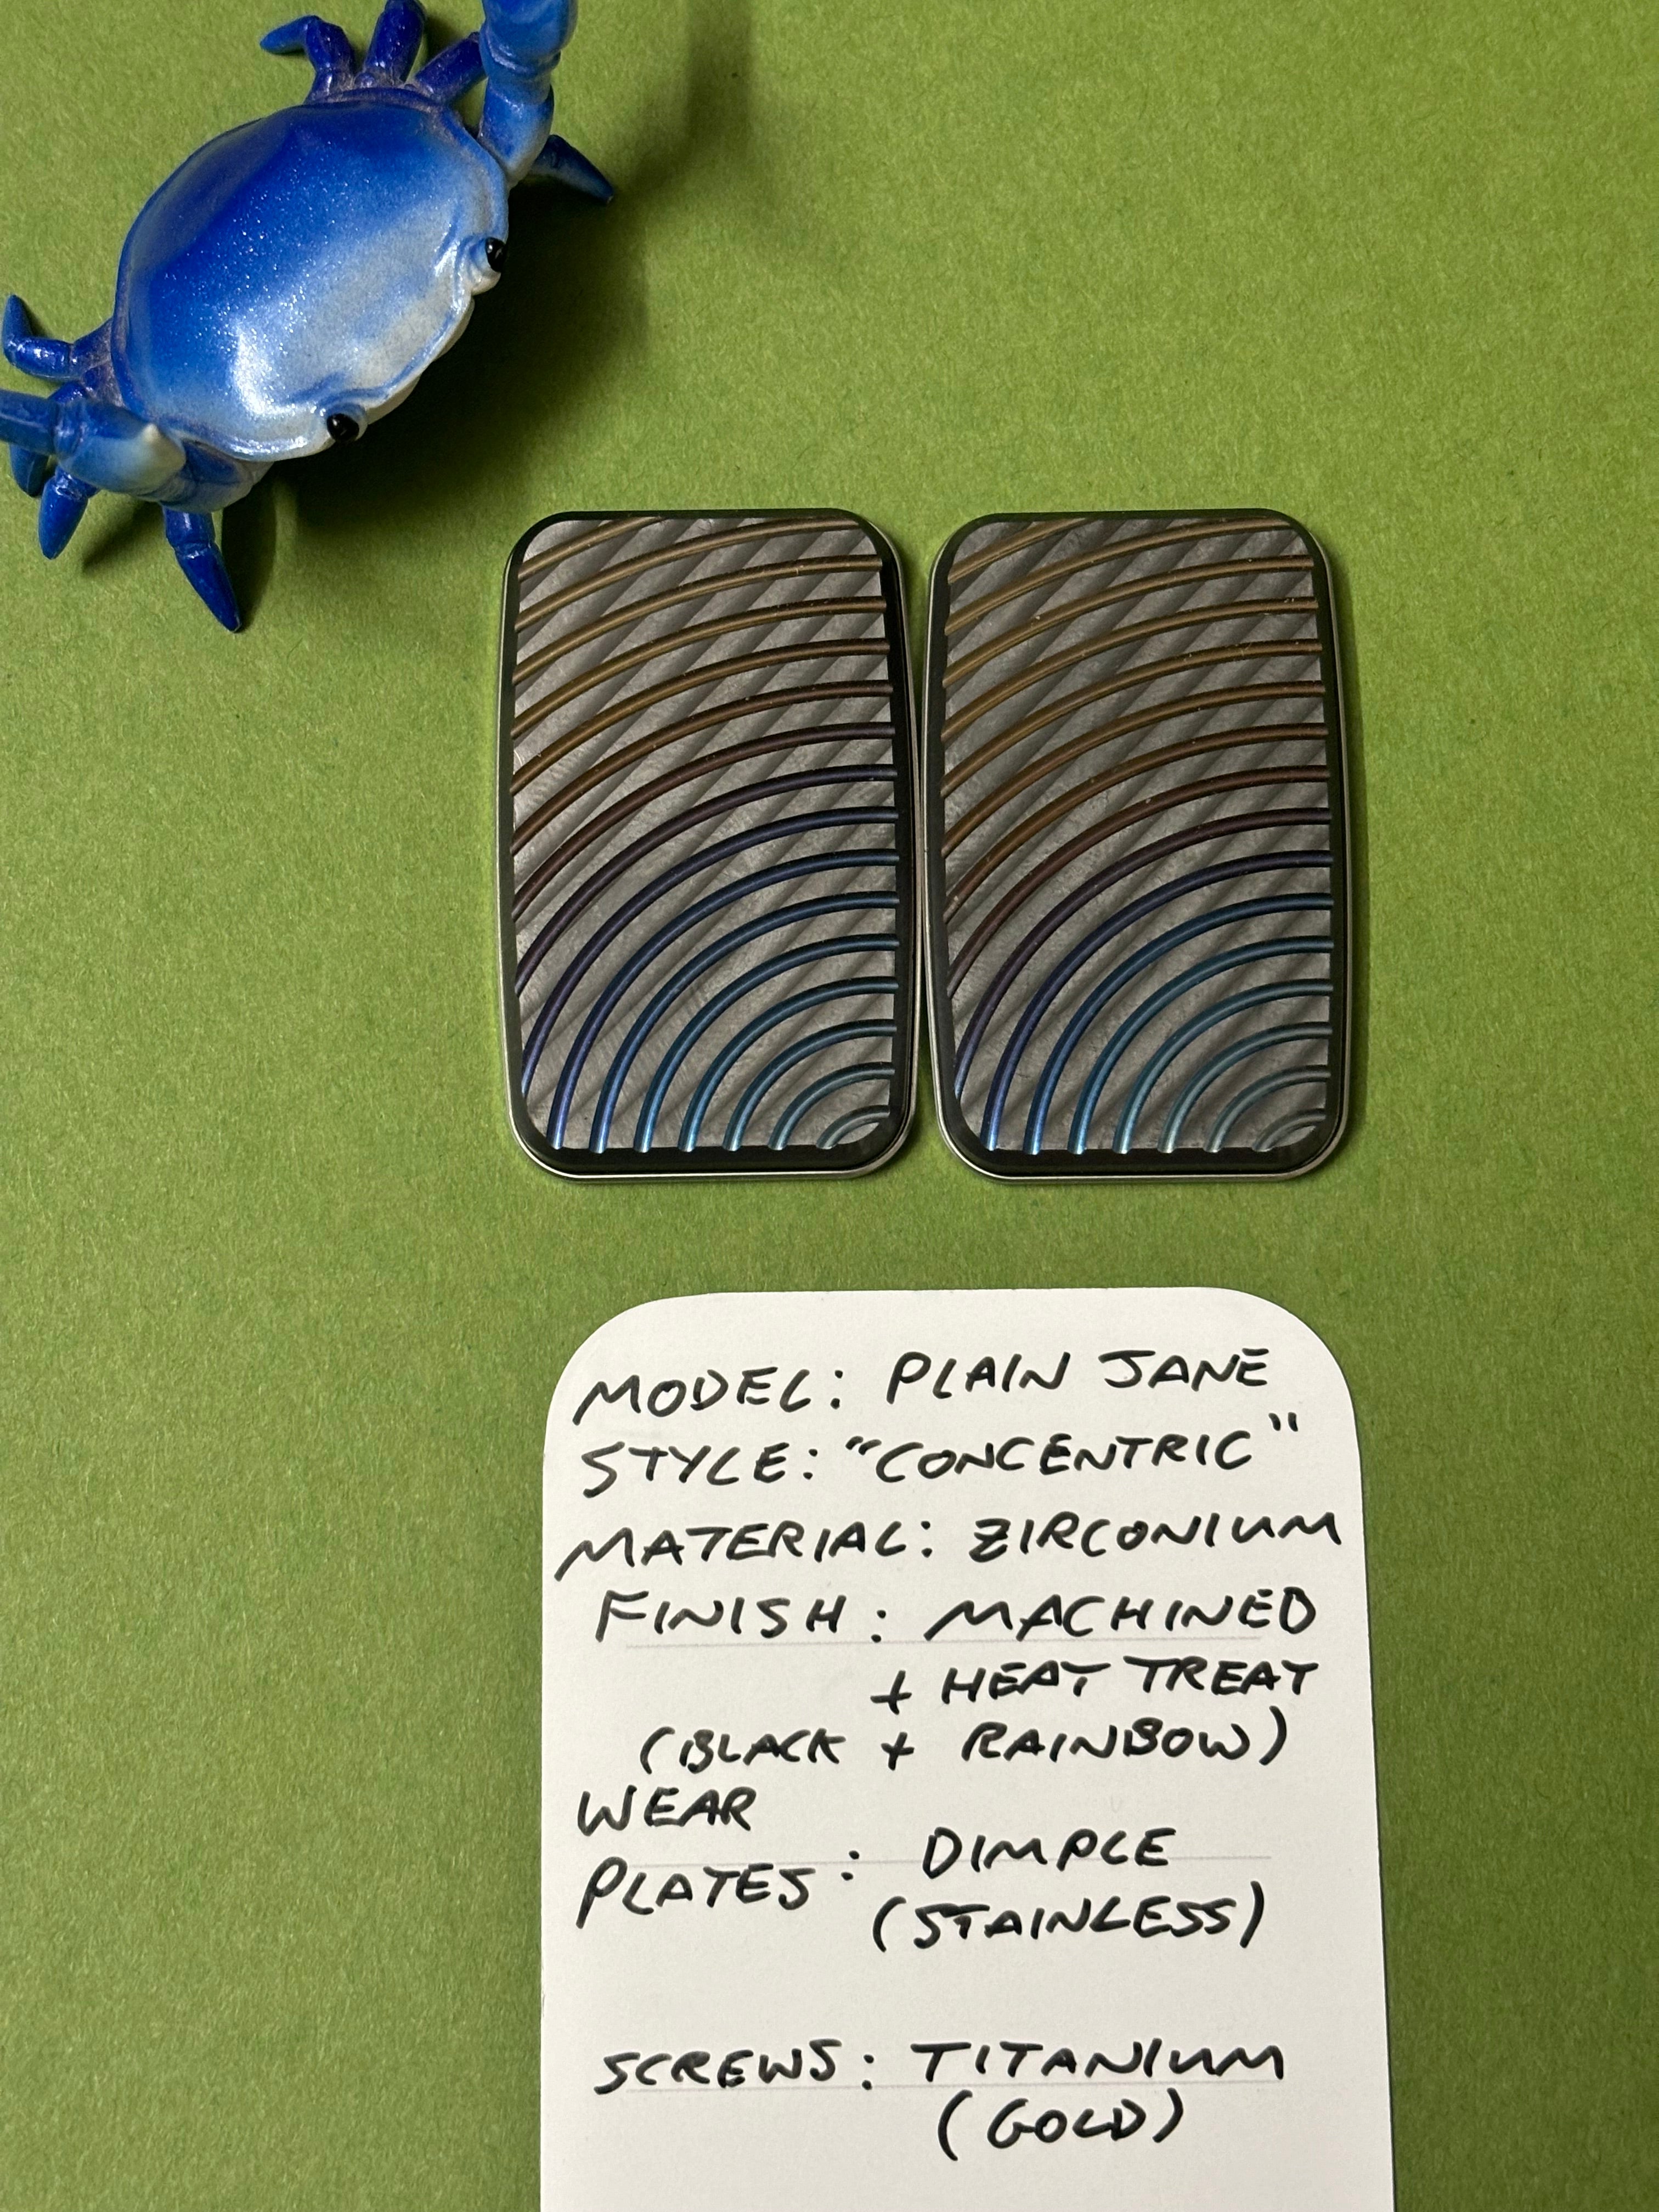 MODEL: PLAIN JANE
STYLE: "CONCENTRIC"
MATERIAL: ZIRCONIUM
FINISH: MACHINED
+ HEAT TREAT
(BLACK + RAINBOW)
WEAR
PLATES: DIMPLE
(STAINLESS)
SCREWS: TITANIUM
(GOLD)